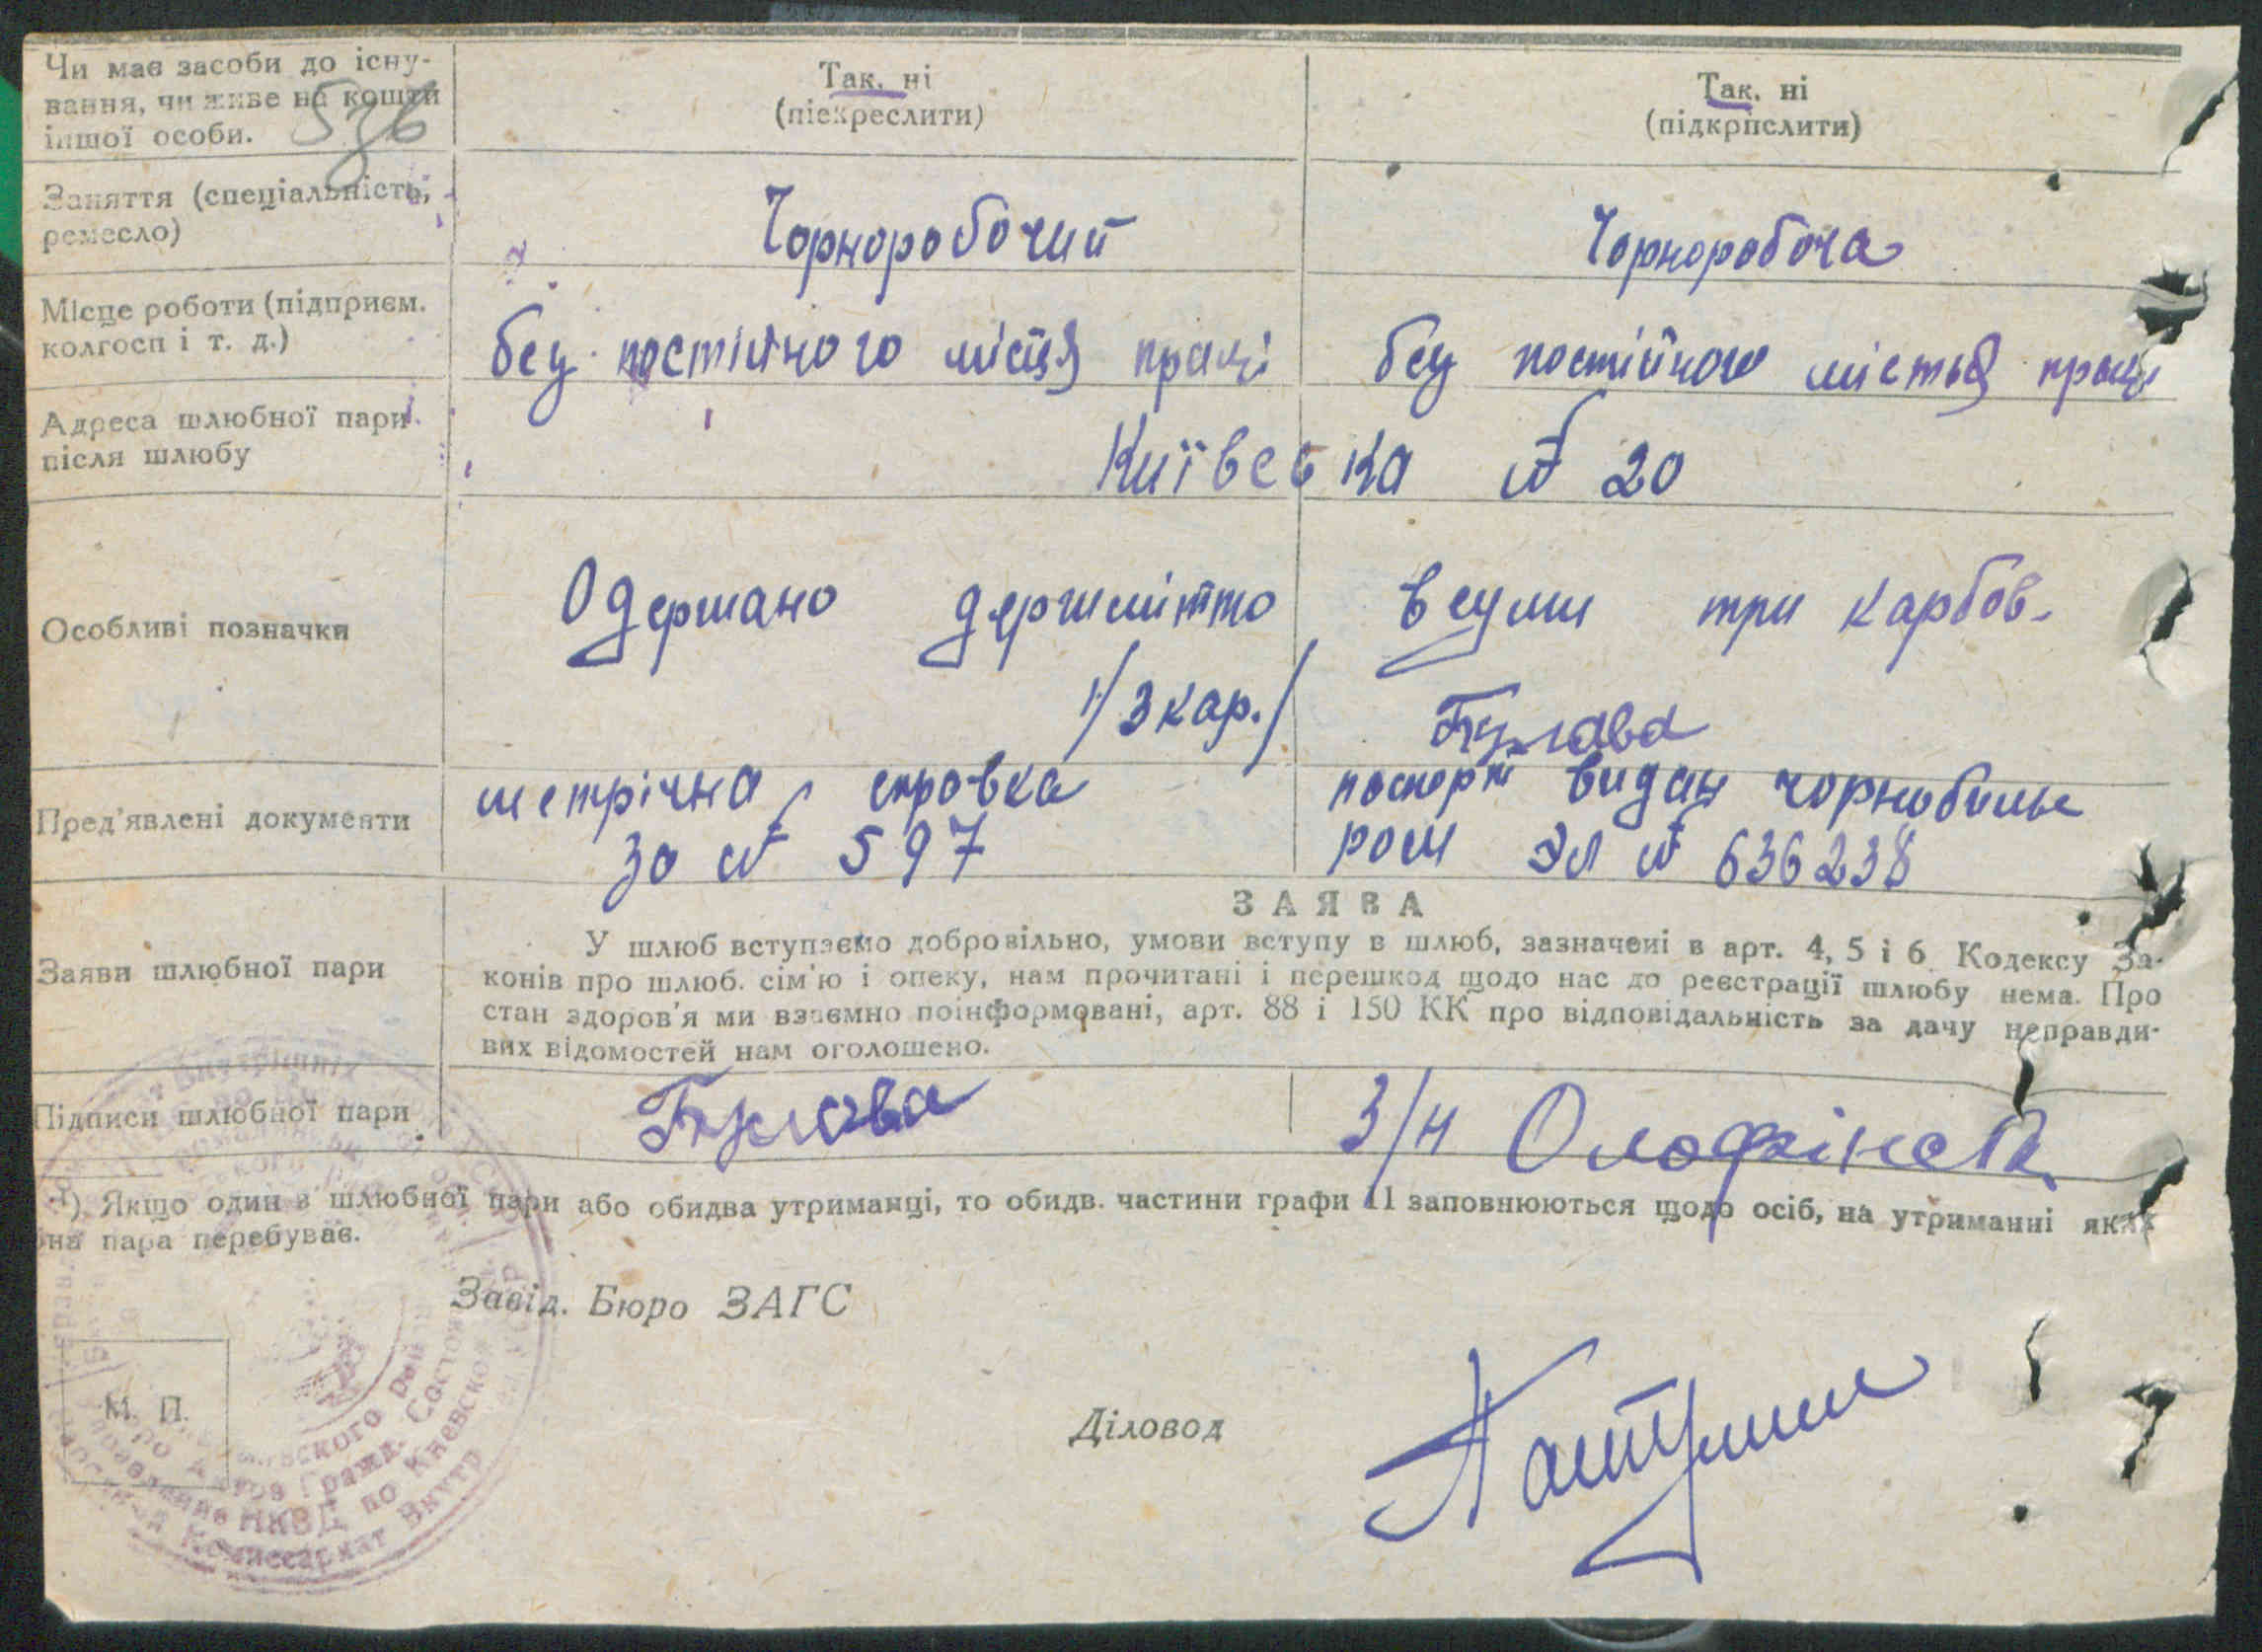 Чи має засоби до існу-
вання, чи живе на кошти
іншої особи.
Так, ні
(піекреслити)
Так, ні
(підкріпслити)
Заняття (спеціальність,
ремесло)
Чорноробочий
Чорноробоча
Місце роботи (підприєм.
колгосп і т. д.)
без постійного місця праці
без постійного містья праці
Адреса шлюбної пари
після шлюбу
Київська № 20
Особливі позначки
Одержано держмітто
в сумі три карбов.
/3 кар./
Булава
Пред'явлені документи
метрічна справка
за № 597
паспорт видан чорнобиль
ром ЭЛ № 636238
ЗАЯВА
Заяви шлюбної пари
У шлюб вступаємо добровільно, умови вступу в шлюб, зазначені в арт. 4, 5 і 6 Кодексу За-
конів про шлюб. сім'ю і опеку, нам прочитані і перешкод щодо нас до реєстрації шлюбу нема. Про
стан здоров'я ми взаємно поінформовані, арт. 88 і 150 КК про відповідальність за дачу неправди-
вих відомостей нам оголошено.
Підписи шлюбної пари
Булава
З/н
¹) Якщо один з шлюбної пари або обидва утриманці, то обидв. частини графи 11 заповнюються щодо осіб, на утриманні яких
пара перебуває.
Завід. Бюро ЗАГС
М. П.
Діловод
НКВД по Киевской
Комиссариат Внутр